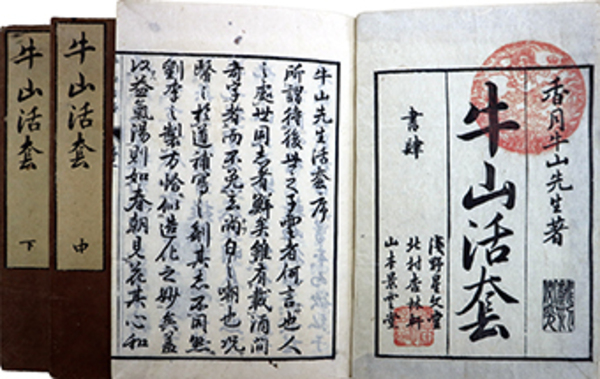 香月牛山先生著
牛山活套
書肆
淺野星文堂
北村杏林軒
山本景雲堂
牛山先生活套序
所謂待後世之子雲者何言也人
之處世同志者鮮矣雖有載酒問
奇字者而不免玄尚白之嘲也況
醫之於道補瀉之劑其志不同然
劉李之製方恰似造化之妙矣蓋
以益氣湯則如春朝見花其心和
牛山活套
中
牛山活套
下